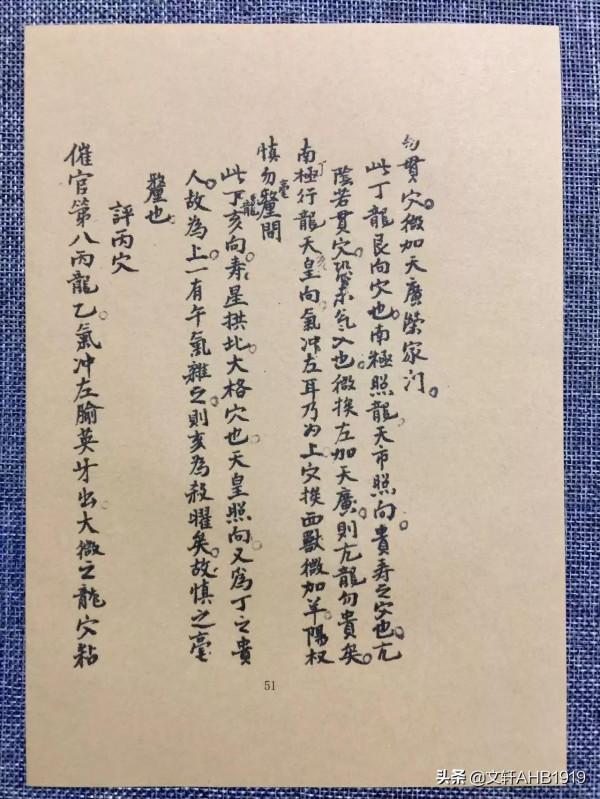 勿貫穴。微加天廣榮家门。
此丁龍艮向穴也。南極照龍天市照向。貴寿之穴也。亢
陰若貫穴。恐煞气入也。微挨左加天廣。則亢龍勿貴矣。
南極行龍天皇向。氣冲左耳乃为上。穴挨西獸微加羊。陽权
慎勿釐毫間
此丁龍亥向。寿星拱北大格穴也。天皇照向。又爲丁之貴
人。故為上。一有午氣雜之。則亥為殺曜矣。故慎之毫
釐也
評丙穴
催官第八丙龍乙。氣冲左腧英牙出。大微之龍穴粘
51
头条 @文轩AHB1919